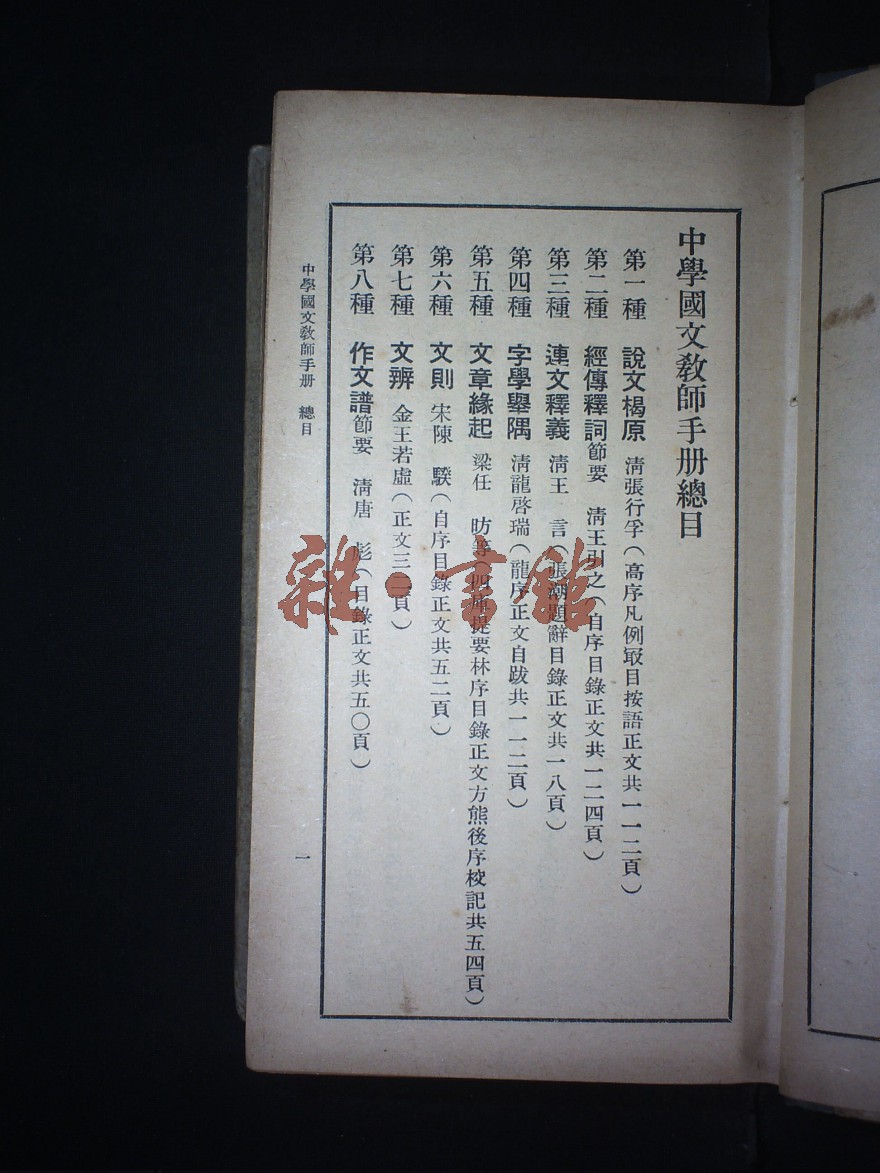 中學國文教師手册總目
第一種 說文楬原 清張行孚（高序凡例㝡目按語正文共一一二頁）
第二種 經傳釋詞節要 清王引之（自序目錄正文共一二四頁）
第三種 連文釋義 清王 言（張潮題辭目錄正文共一八頁）
第四種 字學舉隅 清龍啓瑞（龍序正文自跋共一一二頁）
第五種 文章緣起 梁任 昉等（四庫提要林序目錄正文方熊後序校記共五四頁）
第六種 文則 宋陳 騤（自序目錄正文共五二頁）
第七種 文辨 金王若虛（正文三二頁）
第八種 作文譜節要 清唐 彪（目錄正文共五〇頁）
中學國文教師手册 總目
一
雜·書館